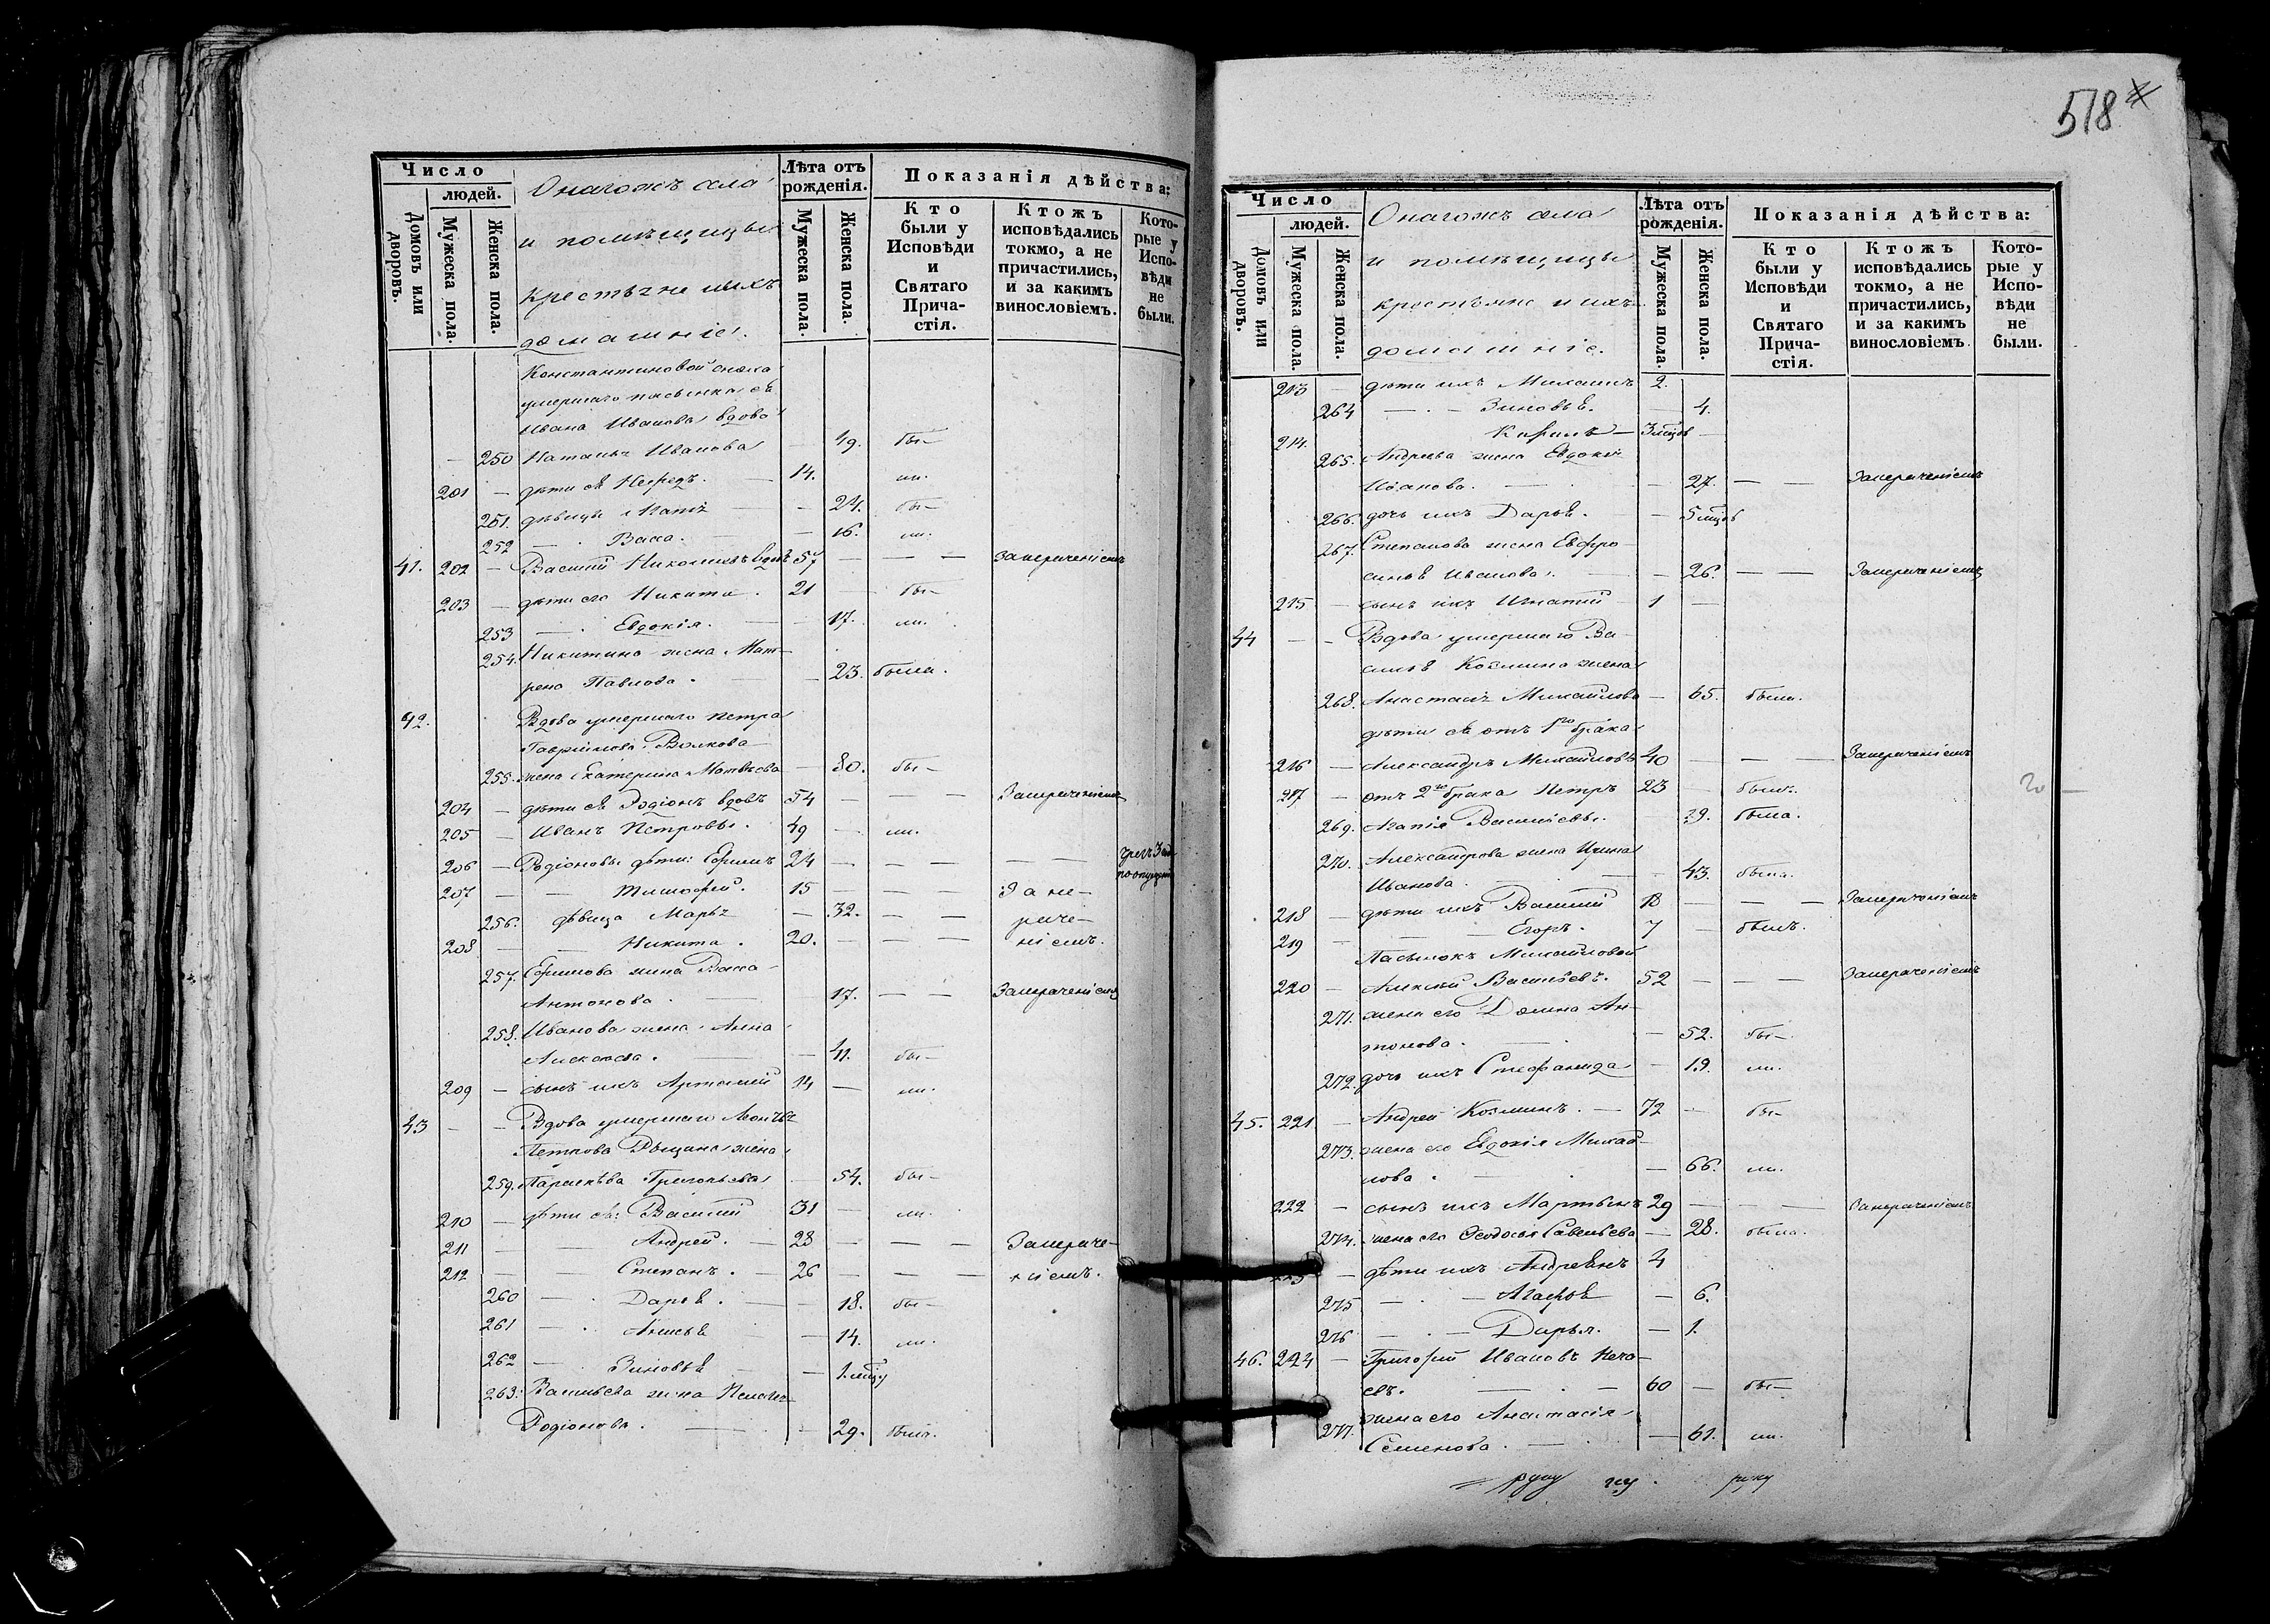 518
Число
людей.
Домовъ или дворовъ.
Мужеска пола.
Женска пола.
Онагожъ села
и помѣщицы
крестьяне и ихъ
домашніе.
Лѣта отъ рожденія.
Мужеска пола.
Женска пола.
Показанія дѣйства:
Кто были у Исповѣди и Святаго Прича-стія.
Ктожъ исповѣдались токмо, а не причастились, и за какимъ винословіемъ.
Кото-рые у Испо-вѣди не были.
Константиновой сноха
умершаго пасынка ея
Ивана Иванова вдова
250 Наталья Иванова 49. бы-
201 дѣти ея Нефедъ. 14. ли.
251. дѣвицы Агафія 24. бы-
252 Васса. 16. ли.
41. 202 Василій Николаевъ вдовъ 57 занерѣченіемъ
203 дѣти его Никита. 21 бы-
253 Евдокія. 17. ли.
254. Никитина жена Мат-
рена Павлова. 23. была.
42. Вдова умершаго Петра
Гаврилова Волкова
255. жена Екатерина Матвѣева 80. бы-
204 дѣти ея Родіонъ вдовъ 54 Занерѣченіемъ
205 Иванъ Петровы. 49 ли.
206 Родіоновы дѣти: Ефимъ 24
207 Тимофей. 15 Зане-
256. дѣвица Марья 32. рѣче-
208 Никита. 20. ніемъ.
257. Ефимова жена Васса
Антонова. 17. Занерѣченіемъ
258. Иванова жена Анна
Алексѣева. 41. бы-
209 сынъ ихъ Артемій 14 ли.
43 Вдова умершаго Леонтья
Петрова жена
259. Параскѣва Григорьева 54. бы-
210 дѣти ея: Василій 31 ли.
211 Андрей. 28 Занерѣче-
212 Степанъ. 26 ніемъ.
260 Дарья. 18. бы-
261 Анисья 14. ли.
262 Зиновья
263. Васильева жена Пелагея
Родіонова. 29. была.
Число
людей.
Домовъ или дворовъ.
Мужеска пола.
Женска пола.
Онагожъ села
и помѣщицы
крестьяне и ихъ
домашніе.
Лѣта отъ рожденія.
Мужеска пола.
Женска пола.
Показанія дѣйства:
Кто были у Исповѣди и Святаго Прича-стія.
Ктожъ исповѣдались токмо, а не причастились, и за какимъ винословіемъ.
Кото-рые у Испо-вѣди не были.
213 дѣти ихъ Михаилъ 2.
264 Зиновья. 4.
214. Кирилъ 3 мѣсцов
265. Андреева жена Евдокія
Иванова. 27. Занерѣченіемъ
266. дочь ихъ Дарья. 5 мѣсцов
267. Степанова жена Евфро-
синья Иванова. 26. Занерѣченіемъ
215 сынъ ихъ Игнатій 1
44 Вдова умершаго Ва-
силья Козмина жена
268. Анастасія Михайлова 65. была.
дѣти ея отъ 1го брака
216 Александръ Михайловъ 40 Занерѣченіемъ
217 отъ 2го брака Петръ 23 былъ.
269. Агапія Васильевы. 29. была.
270. Александрова жена Ирина
Иванова. 43. была.
218 дѣти ихъ Василій 18 Занерѣченіемъ
219 Егоръ. 7 былъ.
Пасынокъ Михайловой
220 Алексій Васильевъ. 52 Занерѣченіемъ
271. жена его Домна Ан-
тонова. 52. бы-
272. дочь ихъ Стефанида 19. ли.
45. 221 Андрей Козминъ. 72 бы-
273. жена его Евдокія Михай-
лова. 66. ли.
222 сынъ ихъ Мартынъ 29 Занерѣченіемъ
274. жена его Ѳеодосья Савельева 28. была.
223 дѣти ихъ Андреянъ 4
275 Агафья 6.
276 Дарья. 1.
46. 224 Григорій Ивановъ Неча-
евъ. 60 бы-
277. жена его Анастасія
Семенова. 61. ли.